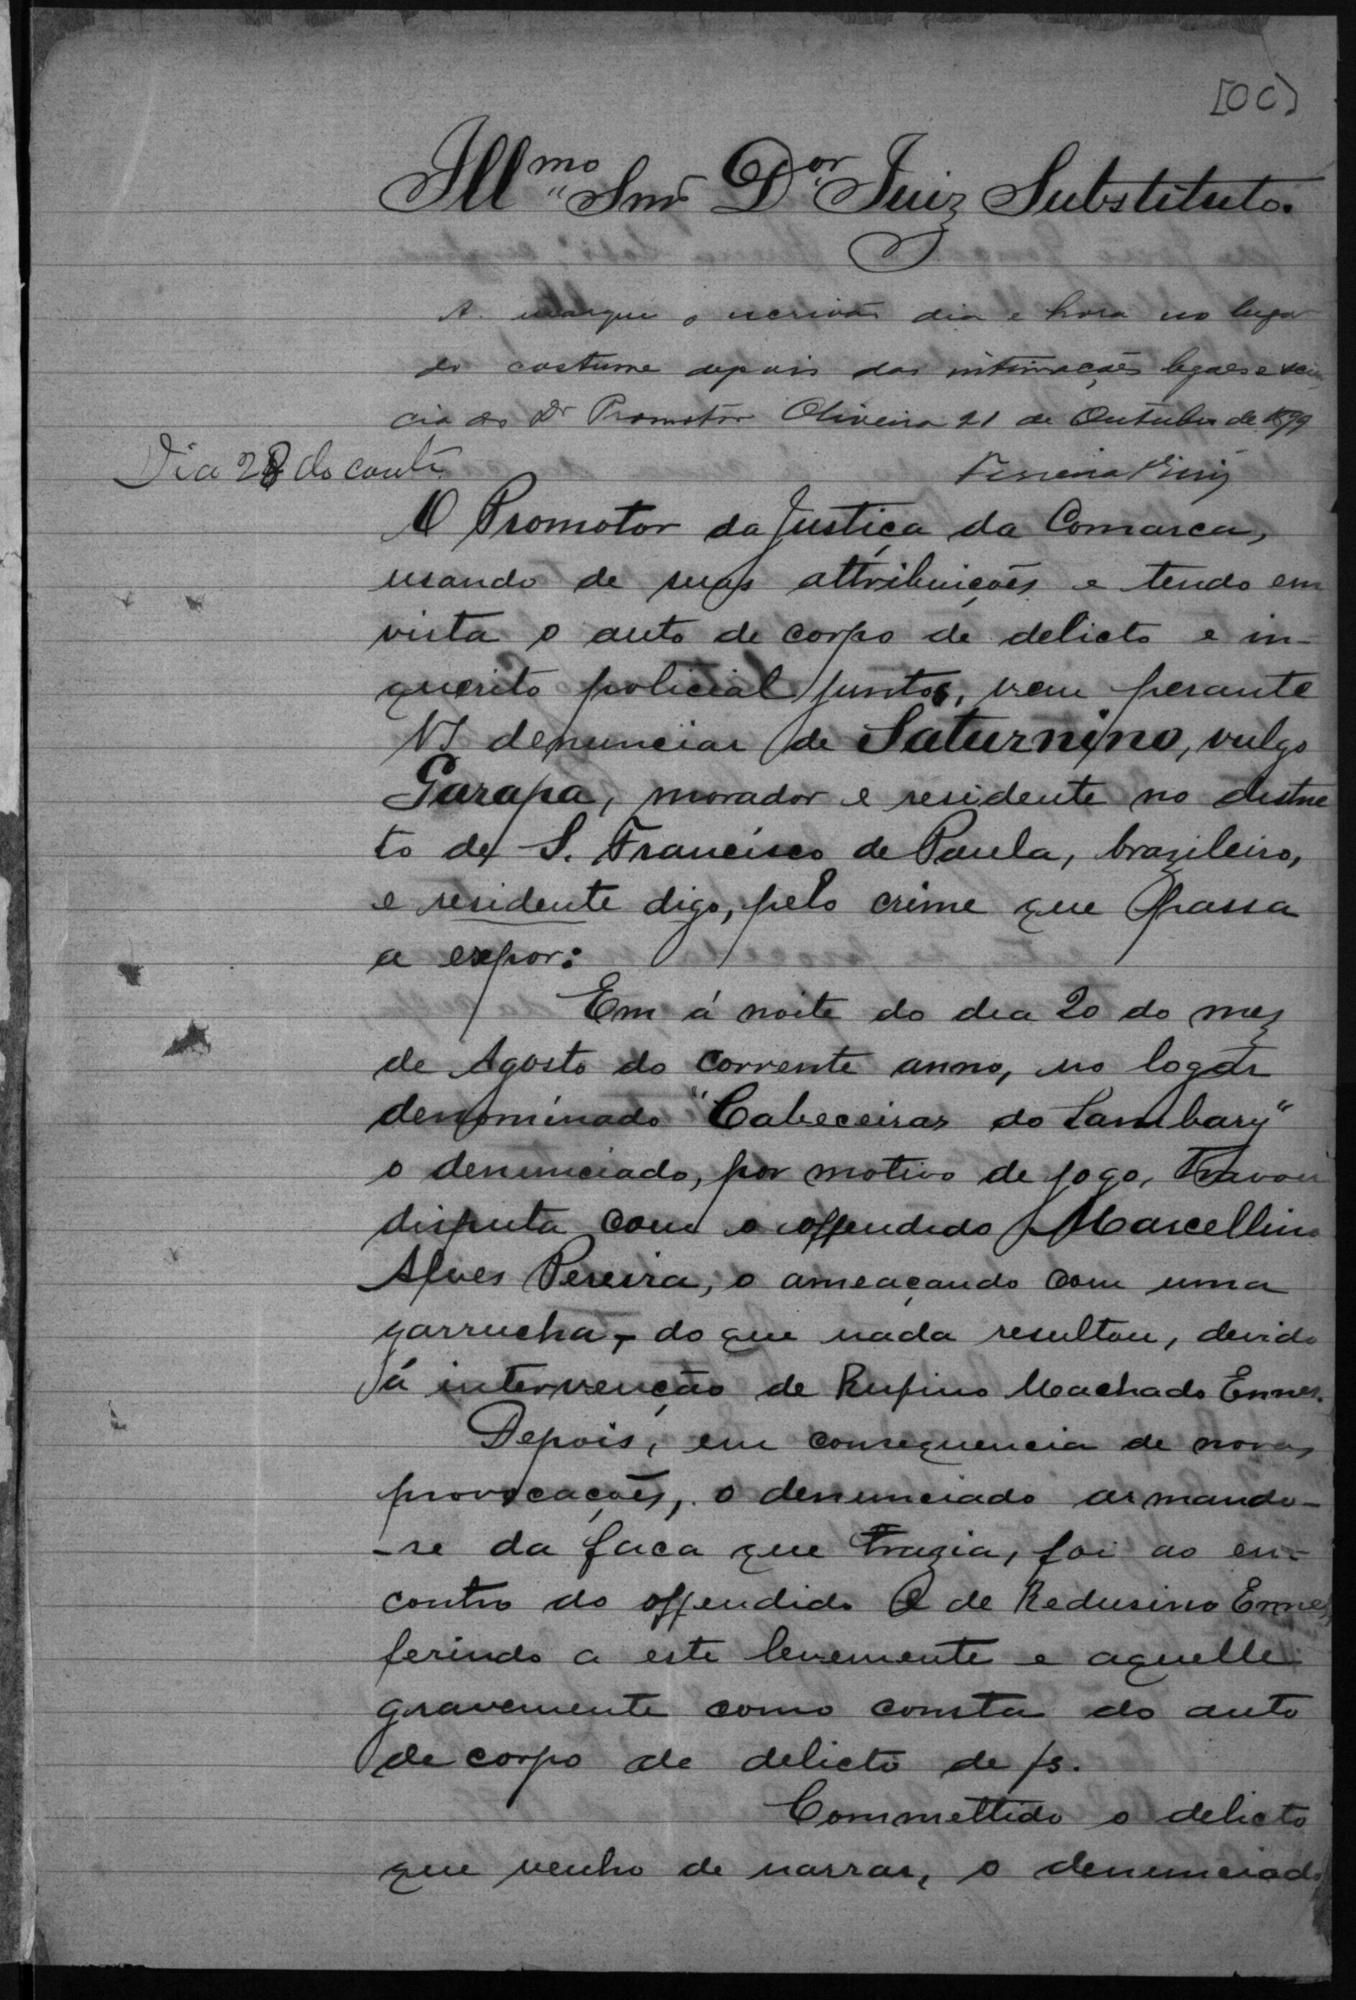 [OC]
Ill.mo Snr Dor Juiz Substituto.
A. marque o escrivão dia e hora no lugar
do costume depois das intimações legaes e scien
cia do Dr Promotor Oliveira 21 de Outubro de 1899
Dia 28 do corrte
O Promotor da Justiça da Comarca,
usando de suas attribuições e tendo em
vista o auto de corpo de delicto e in-
querito policial juntos, vem perante
VS denunciar de Saturnino, vulgo
Garapa, morador e residente no distric
to de S. Francisco de Paula, brazileiro,
e residente digo, pelo crime que passa
a expor:
Em á noite do dia 20 do mez
de Agosto do corrente anno, no logar
denominado "Cabeceiras do Lambary"
o denunciado, por motivo de jogo, travou
disputa com o offendido Marcellino
Alves Pereira, o ameaçando com uma
garrucha, do que nada resultou, devido
á intervenção de Rufino Machado Ennes.
Depois, em consequencia de novas
provocações, o denunciado armando-
-se da faca que trazia, foi ao en-
contro do offendido e de Redusino Ennes,
ferindo a este levemente e aquelle
gravemente como consta do auto
de corpo de delicto de fs.
Commettido o delicto
que venho de narrar, o denunciado